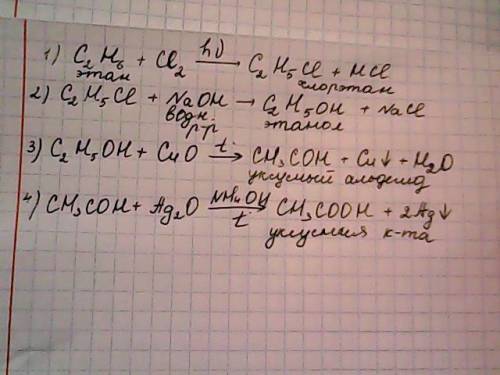 1) C₂H₆ + Cl₂ hν→ C₂H₅Cl + HCl
этан хлорэтан
2) C₂H₅Cl + NaOH → C₂H₅OH + NaCl
водн. этанол
р-р
3) C₂H₅OH + CuO t→ CH₃COH + Cu↓ + H₂O
уксусный альдегид
4) CH₃COH + Ag₂O NH₄OH→ CH₃COOH + 2Ag↓
t уксусная к-та